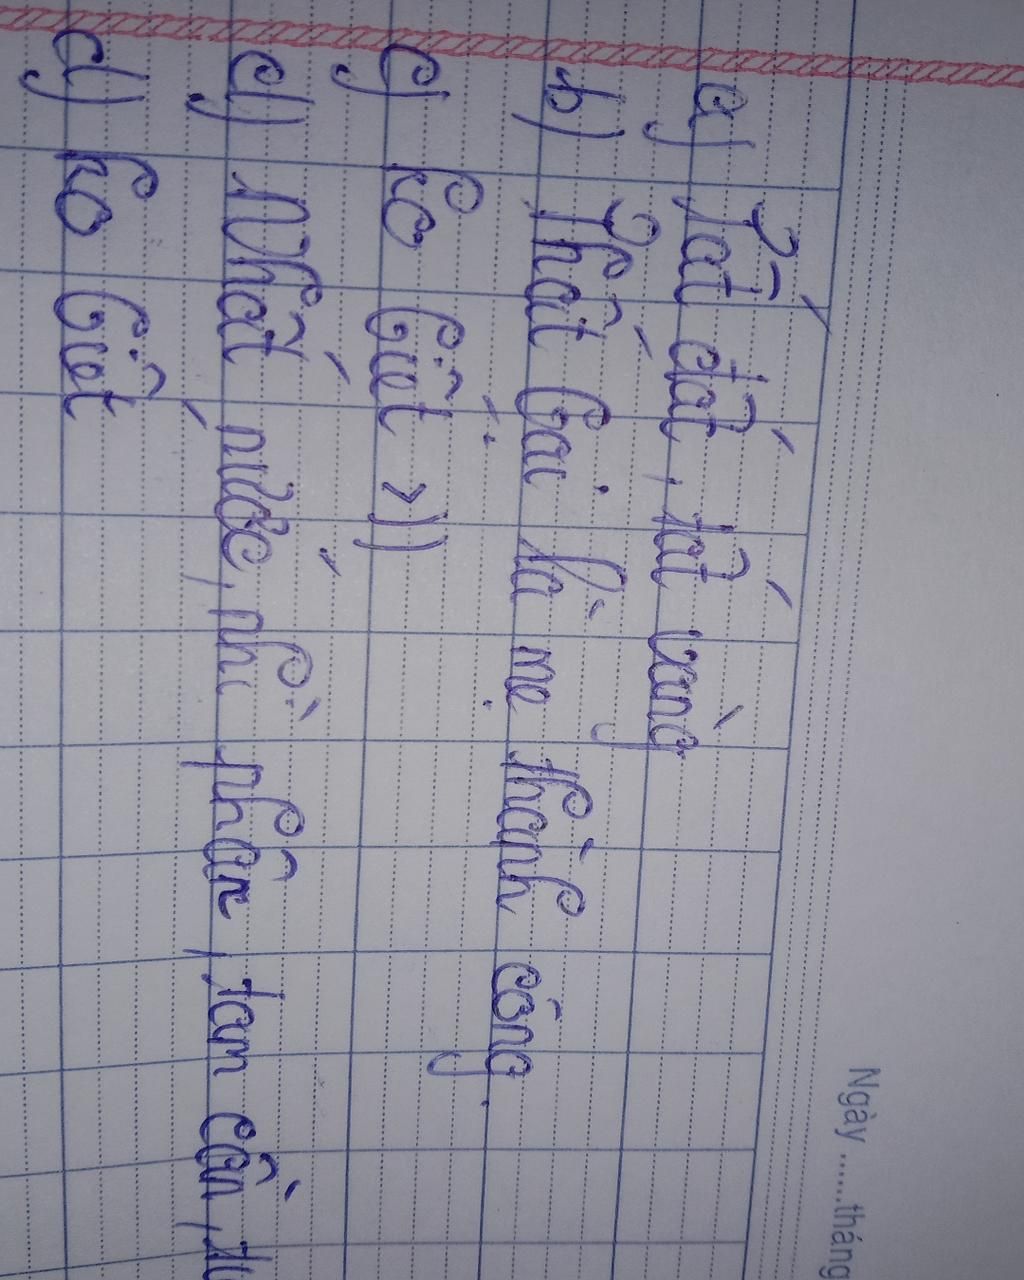 Ngày ......tháng
a) Tất đất, tất vàng
b) Thất bại là mẹ thành công.
c) ko biết :>))
d) Nhất nước, nhì phân, tam cần,
d) ko biết